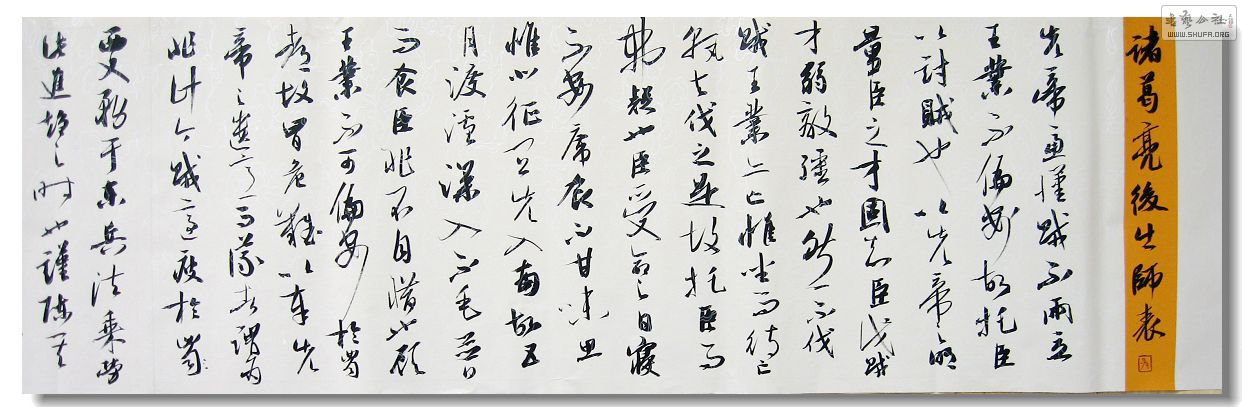 書藝公社
WWW.SHUFA.ORG
諸葛亮後出師表
先帝慮漢賊不兩立
王業不偏安故托臣
以討賊也以先帝之明
量臣之才固知臣伐賊
才弱敵彊也然不伐
賊王業亦亡惟坐而待亡
孰與伐之是故托臣而
弗疑也臣受命之日寢
不安席食不甘味思
惟北征宜先入南故五
月渡瀘深入不毛并日
而食臣非不自惜也顧
王業不可偏安於蜀
都故冒危難以奉先
帝之遺意而議者謂為
非計今賊適疲於蜀
西又務于東兵法乘勞
此進趨之時也謹陳其